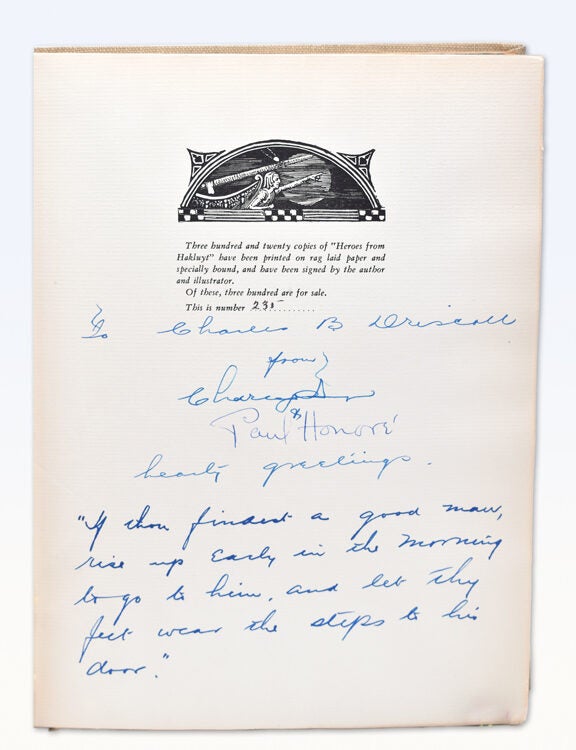 Three hundred and twenty copies of "Heroes from
Hakluyt" have been printed on rag laid paper and
specially bound, and have been signed by the author
and illustrator.
Of these, three hundred are for sale.
This is number 235..........
To Charles B Driscoll
from
Charles
&
Paul Honoré
hearty greetings.
"If thou findest a good man,
rise up early in the morning
to go to him, and let thy
feet wear the steps to his
door."